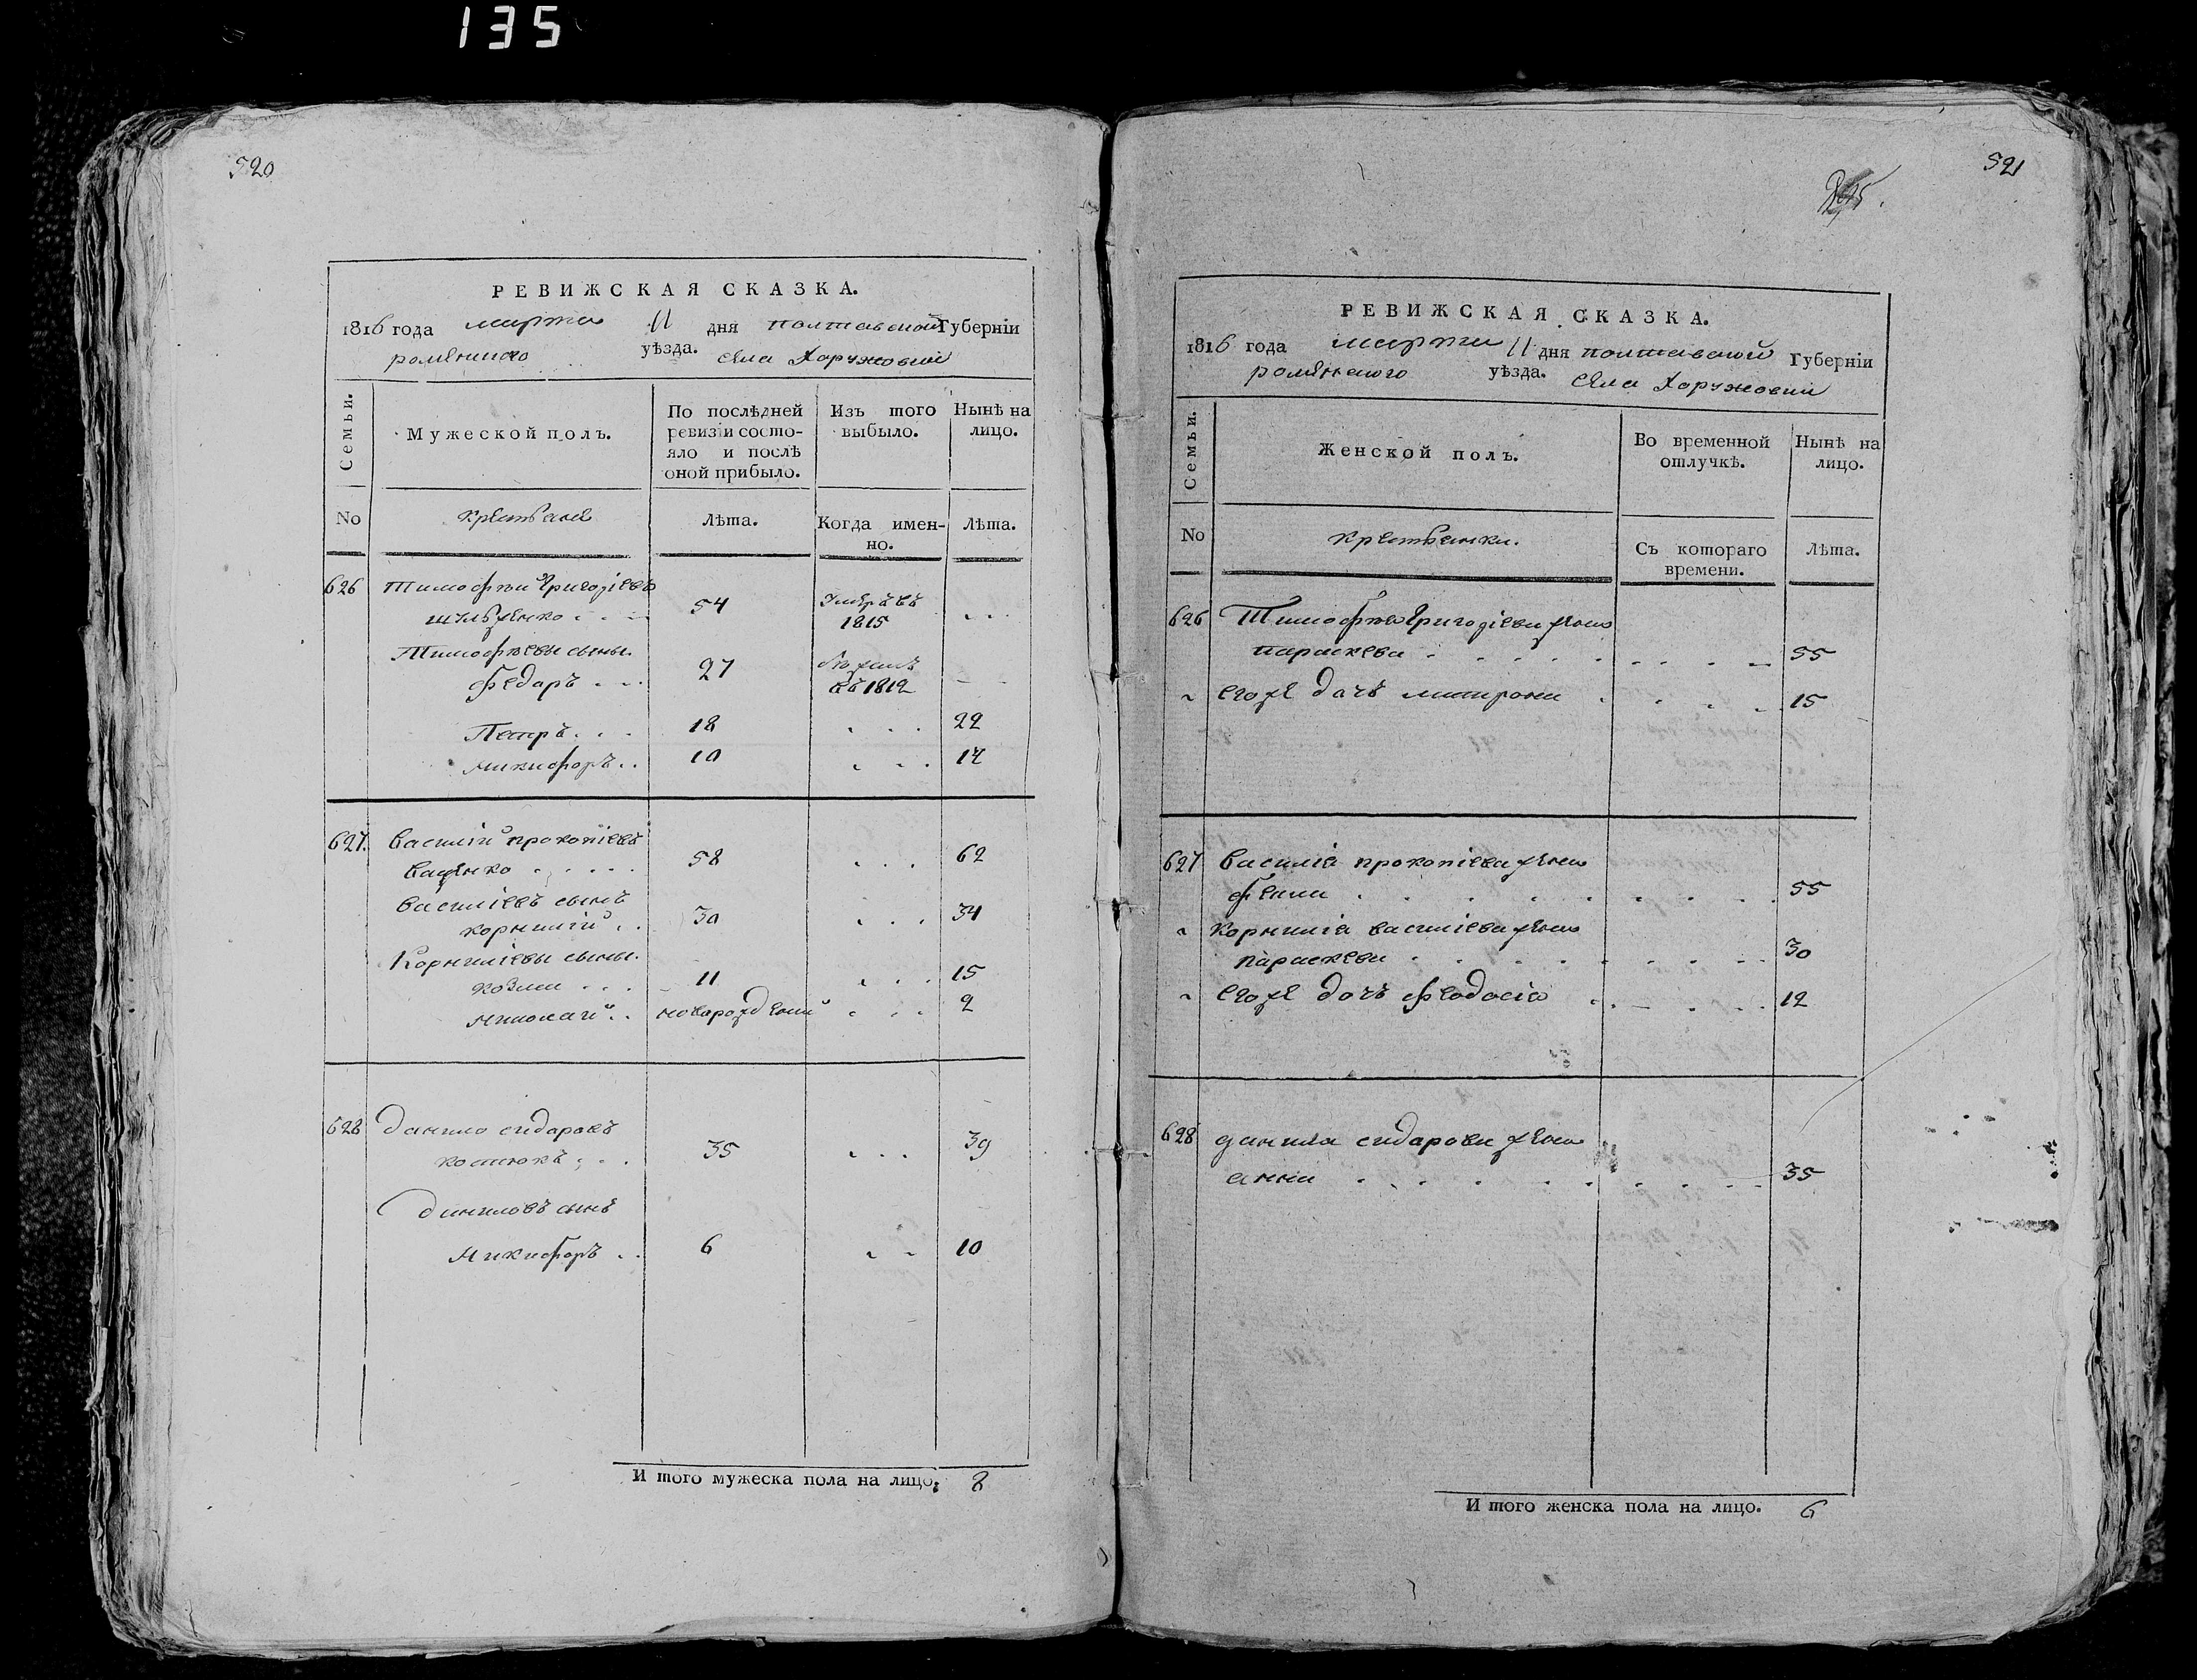 135
520
РЕВИЖСКАЯ СКАЗКА.
1816 года марта 11 дня полтавской Губерніи
роменского уѣзда. села Хоружовки
Семьи.
Мужеской полъ.
По послѣдней ревизіи состояло и послѣ оной прибыло.
Изъ того выбыло.
Нынѣ на лицо.
No
крестьане
Лѣта.
Когда именно.
Лѣта.
626 тимофѣй григоріевъ
54 умеръ въ 1815
Тимофѣевы сыны.
федаръ 27 въ 1812
Петръ 18 22
микифоръ 10 14
627. василій прокопіевъ
ваценко 58 62
василіевъ сынъ
корнилій 30 34
Корниліевы сыны.
козма 11 15
николай новорожденый 2
628 данило сидаровъ
костюкъ 35 39
даниловъ сынъ
микифоръ 6 10
И того мужеска пола на лицо. 8
521
РЕВИЖСКАЯ СКАЗКА.
1816 года марта 11 дня полтавской Губерніи
роменского уѣзда. села Хоружовки
Семьи.
Женской полъ.
Во временной отлучкѣ.
Нынѣ на лицо.
No
крестьанки.
Съ котораго времени.
Лѣта.
626 Тимофѣа григоріева жена
параскева 55
егоже дочъ матрона 15
627 василіа прокопіева жена
55
корниліа василіева жена
параскева 30
егоже дочъ феодосіа 12
628 данила сидарова жена
анна 35
И того женска пола на лицо. 6